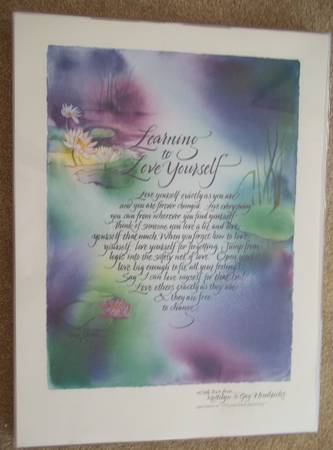 Learning
to
Love Yourself
Love yourself exactly as you are
and you are forever changed. Love everything
you can from wherever you find yourself.
Think of someone you love a lot and love
yourself that much. When you forget how to love
yourself, love yourself for forgetting. Jump from
logic into the safety net of love. Open your
love big enough to fit all your feelings.
Say "I can love myself for that, too."
Love others exactly as they are
& they are free
to change.
Kathlyn & Gay Hendricks